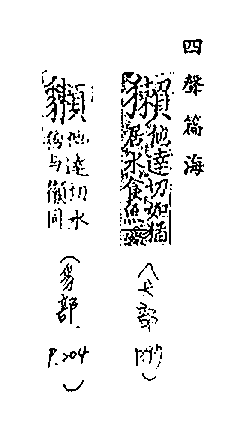 四聲篇海
獺
他達切如猫
居水食魚
(犬部
他達切水
与獺同
(豸部.
P.204)